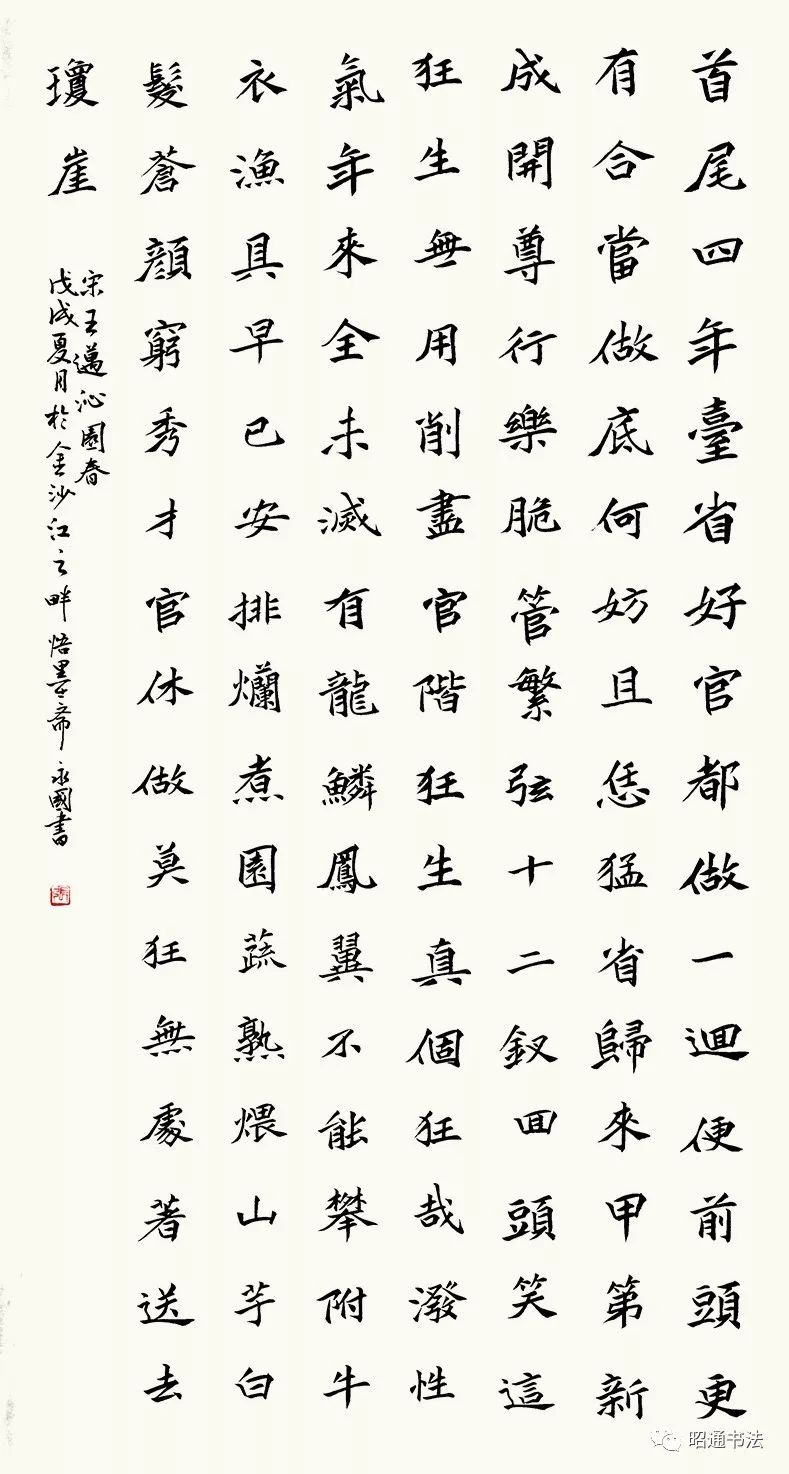 首尾四年臺省好官都做一迴便前頭更
有合當做底何妨且恁猛省歸來甲第新
成開尊行樂脆管繁弦十二釵回頭笑這
狂生無用削盡官階狂生真個狂哉潑性
氣年來全未滅有龍鱗鳳翼不能攀附牛
衣漁具早已安排爛煮園蔬熟煨山芋白
髮蒼顔窮秀才官休做莫狂無處著送去
瓊崖
宋王邁沁園春
戊戌夏月於金沙江之畔悟墨齋永國書
昭通书法